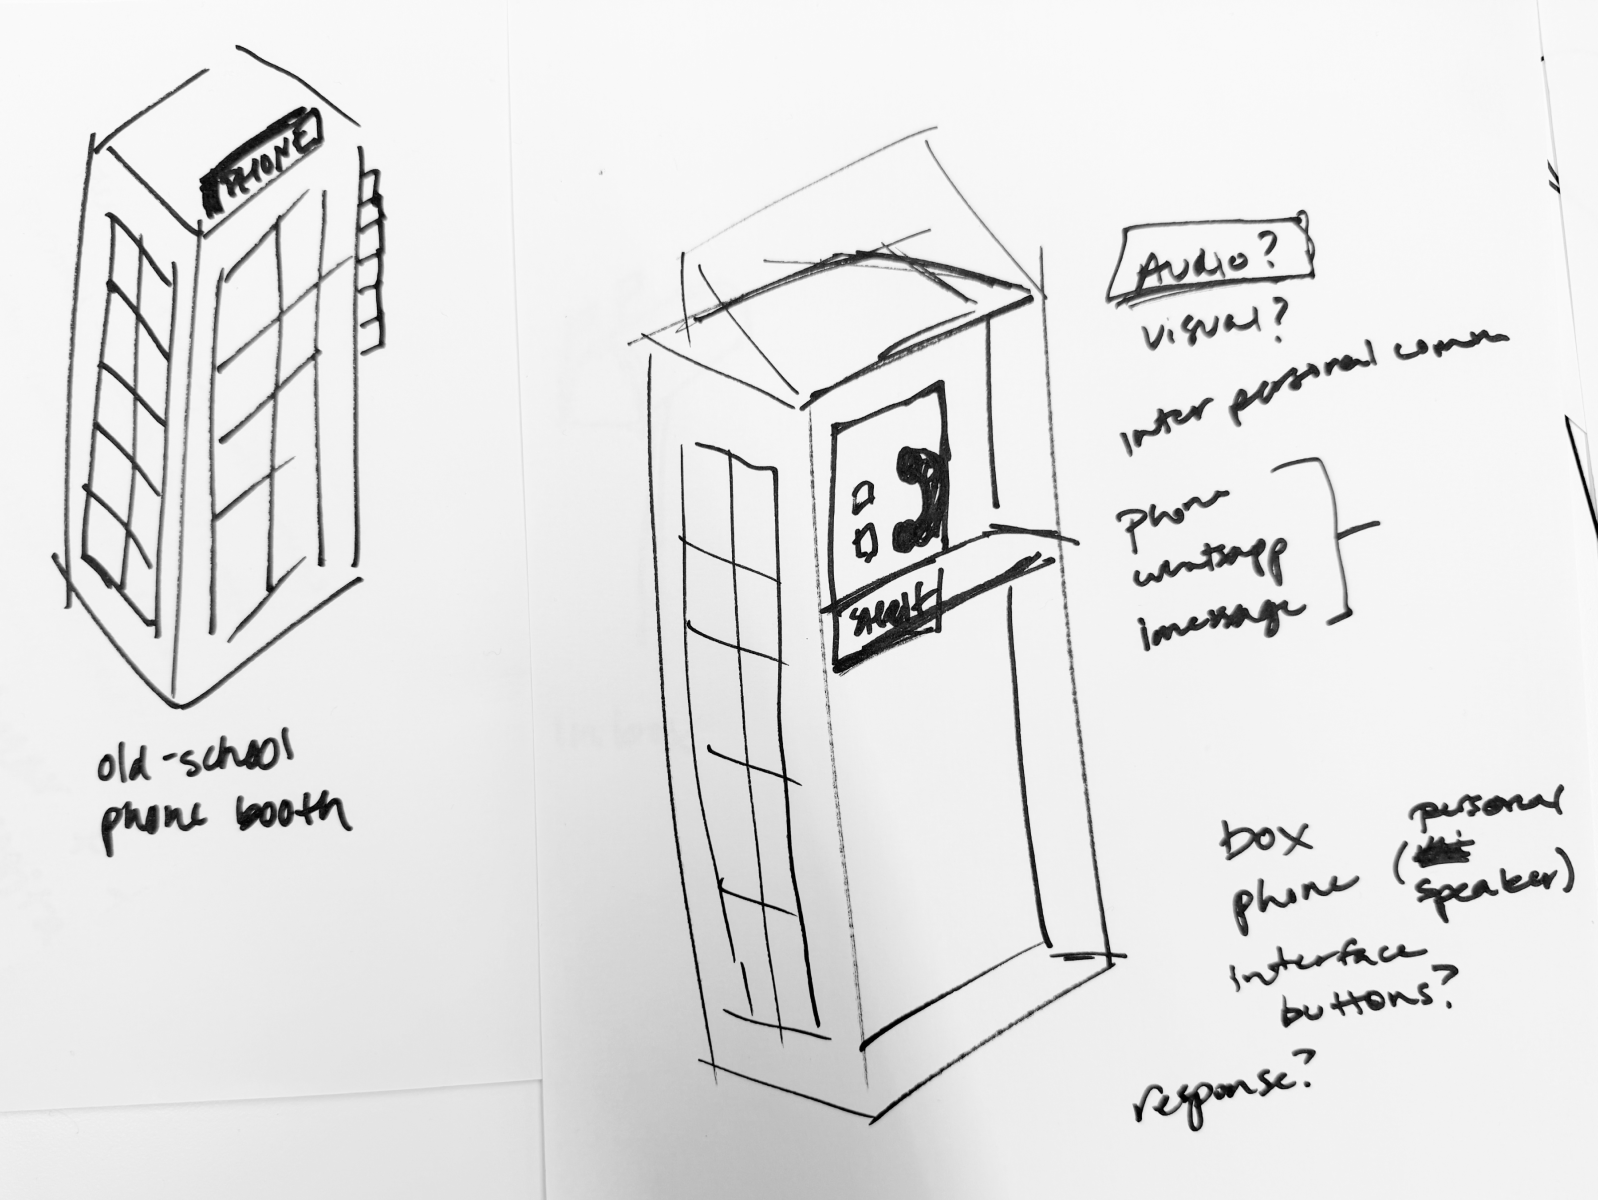 PHONE
old-school
phone booth
Audio?
visual?
inter personal comm
phone
whatsapp
imessage
box
phone (personal
speaker)
interface
buttons?
response?